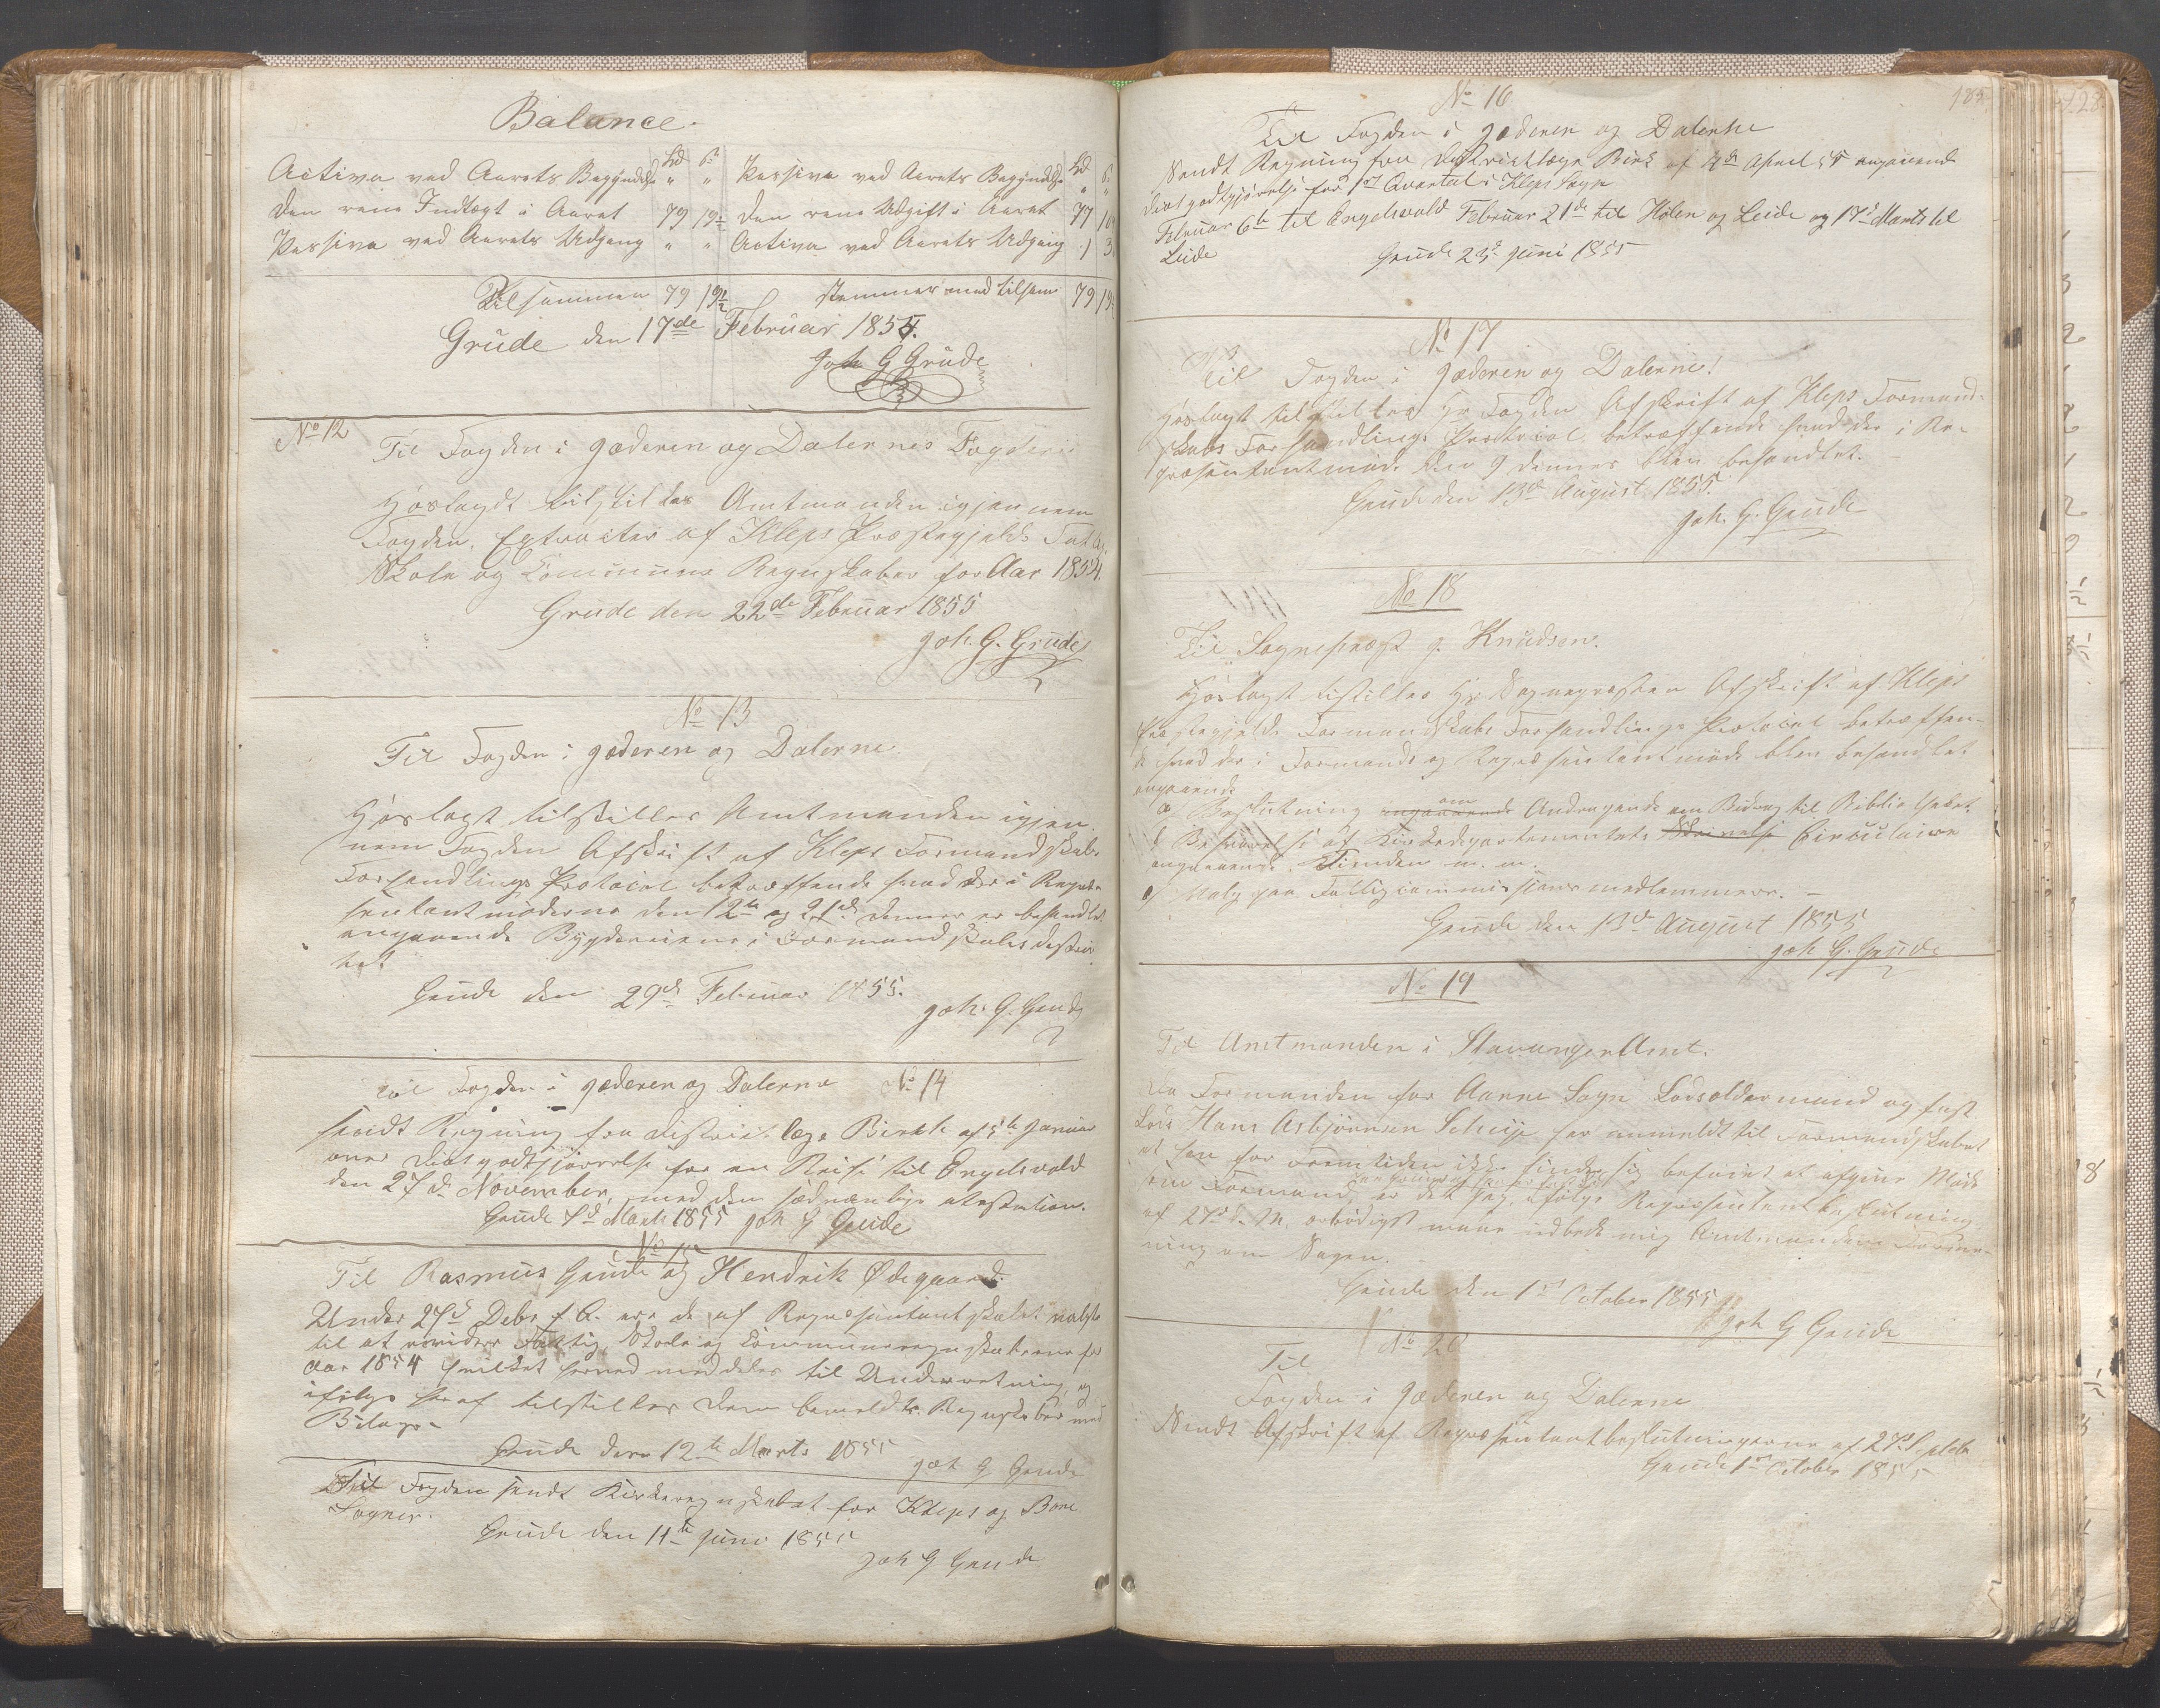 Balance.
Spd ß Spd ß
Activa ved Aarets Begyndelse " " Passiva ved Aarets Begyndelse " "
Den rene Indtægt i Aaret 79 19½ Den rene Udgift i Aaret 77
Passiva ved Aarets Udgang " " Activa ved Aarets Udgang 1
Tilsammen 79 19½ stemmer med tilsam 79 19½
Grude den 17de Februar 1855.
Joh G Grude
No 12
Til Fogden i Jæderen og Dalernes Fogderi
Hoslagdt tilstilles Amtmanden igjennem
Fogden, Extracter af Kleps Præstegjelds Fattig,
Skole og Communes Regnskaber for Aar 1854.
Grude den 22de Februar 1855
Joh. G. Grude
No 13
Til Fogden i Jæderen og Dalerne
Hoslagt tilstilles Amtmanden igjen
nem Fogden Afskrift af Kleps Formandskabs
Forhandlings Protocol betræffende hvad der i Repræ
sentantmøderne den 12te og 21de dennes er behandlet
angaaende Bygdeveiene i Formandskabsdistric
tet
Grude den 29de Februar 1855.
Joh. G. Grude
Til Fogden i Jæderen og Dalerne No 14
sendt Regning fra Districtslæge Birk af 5te Januar
over Diætgodtgjørelse for en Reise til Engelsvold
den 27de November, med den sædvanlige atestation.
Grude 7de Marts 1855 Joh G Grude
No 15
Til Rasmus Grude og Hendrik Ødegaard.
Under 27de Debr f. A. ere de af Repræsentantskabet valgte
til at revidere Fattig, Skole og Communeregnskaberne for
Aar 1854 hvilket herved meddeles til Underretning, og
ifølge heraf tilstilles Dem bemeldte Regnskaber med
Bilage.
Grude den 12te Marts 1855
Joh G Grude
Til Fogden sendt Kirkeregnskabet for Kleps og Bore
Sogner.
Grude den 11te Juni 1855
Joh G Grude
No 16
Til Fogden i Jæderen og Dalerne
Sendt Regning fra Districtlæge Birk af 4de April 55 angaaende
Diætgodtgjørelse for 1st Qvartal i Kleps Sogn
Februar 6te til Engelsvold Februar 21de til Holen og Leide og 17de Marts til
Leide Grude 23de Juni 1855
No 17
Til Fogden i Jæderen og Dalerne!
Hoslagt tilstilles Hr Fogden Afskrift af Kleps Formand-
skabs Forhandlings Protocol betræffende hvad der i Re-
præsentantmøde den 9 dennes blev behandlet. –
Grude den 13de August 1855.
Joh. G. Grude
No 18
Til Sogneprest J. Knudsen.
Hoslagt tilstilles Hr. Sognepræsten Afskrift af Kleps
Præstegjelds Formandskabs Forhandlings Protocol betræffen-
de hvad der i Formands og Repræsentantmøde blev behandlet
angaaende
a, Beslutning angaaende om Andragende om Bidrag til Bibliotheket.
b, Besvarelse af Kirkedepartementets Skrivelse Circulaire
angaaende Tienden m. m.
c, Valg paa Fattigcommissionsmedlemmer. –
Grude den 13de August 1855
Joh G. Grude
No 19
Til Amtmanden i Stavanger Amt.
Da Formanden for Aarre Sogn Lodsoldermand og fast
Lods Hans Asbjørnsen Sehesje har anmeldt til Formandskabet
at han for Fremtiden ikke finder sig beføiet at afgive Møde
som Formand, er det jeg, ifølge Repræsentantbeslutning,
af 27de d. M. ærbødigst maae udbede mig Amtmandens Forme-
ning om Sagen.
Grude den 1st October 1855
Joh G Grude
No 20
Til
Fogden i Jæderen og Dalerne
Sendt Afskrift af Repræsentantbeslutningerne af 27de Septbr
Grude 1st October 1855